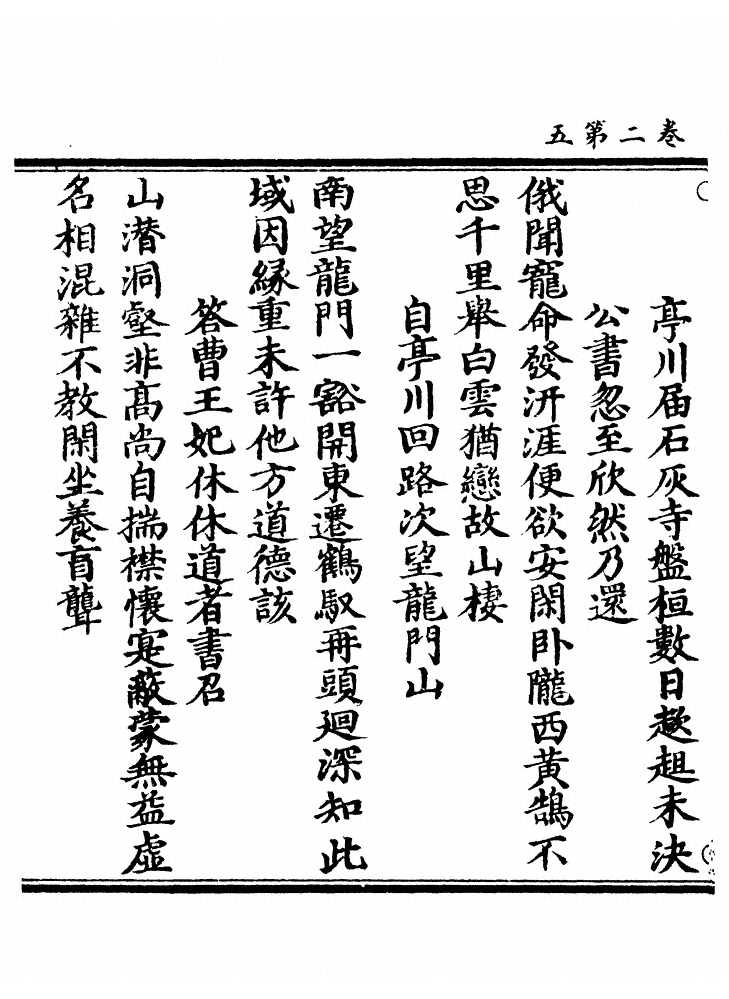 卷二第五
亭川届石灰寺盤桓數日趑趄未決
公書忽至欣然乃還
俄聞寵命發汧涯便欲安閑卧隴西黃鵠不
思千里舉白雲猶戀故山棲
自亭川回路次望龍門山
南望龍門一豁開東遷鶴馭再頭迴深知此
域因緣重未許他方道德該
答曹王妃休休道者書召
山潛洞壑非髙尚自揣襟懷寔蔽蒙無益虛
名相混雜不教閑坐養盲聾